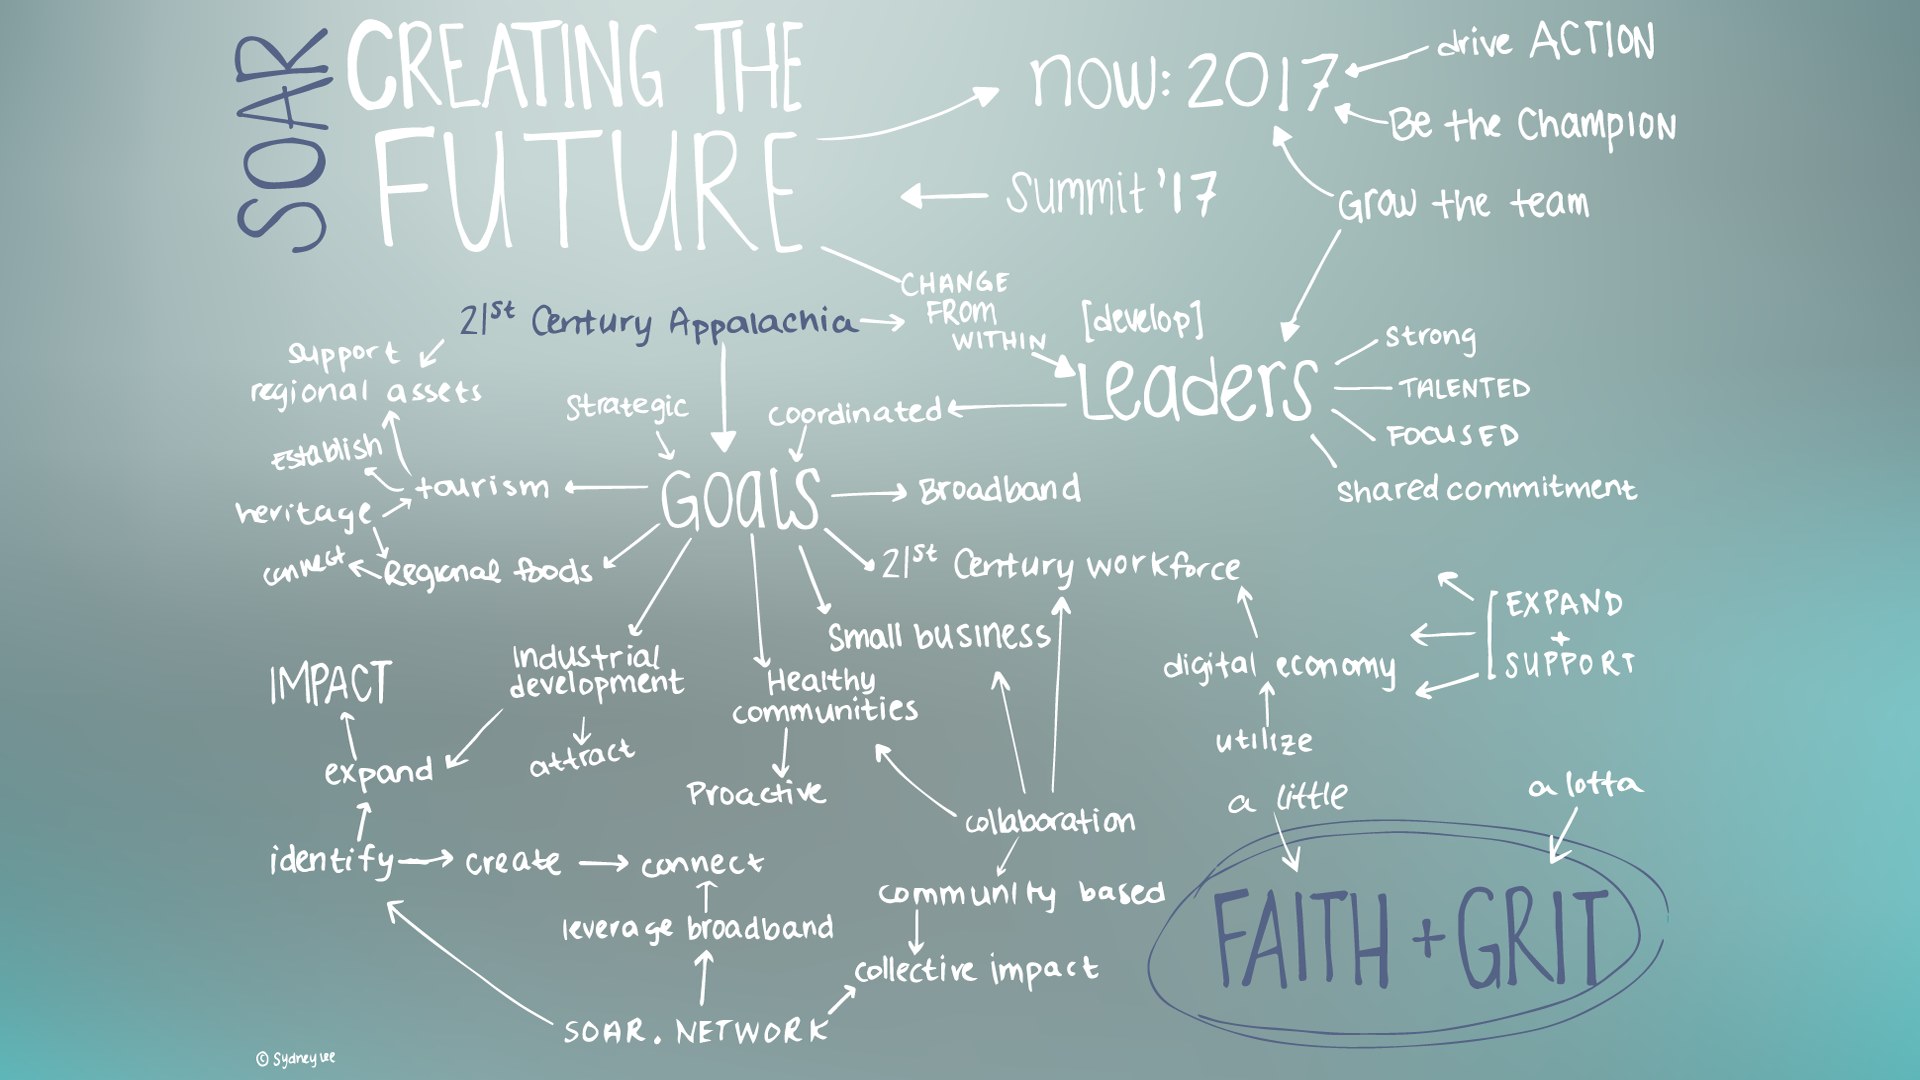 SOAR
CREATING THE
FUTURE
now: 2017
drive ACTION
Be the Champion
Grow the team
Summit '17
CHANGE
FROM
WITHIN
21st Century Appalachia
[develop]
Leaders
strong
TALENTED
FOCUSED
shared commitment
support
regional assets
Strategic
coordinated
Establish
tourism
GOALS
Broadband
heritage
connect
Regional foods
21st Century workforce
Small business
EXPAND
+
SUPPORT
digital economy
utilize
IMPACT
Industrial
development
Healthy
communities
expand
attract
Proactive
collaboration
a little
a lotta
identify
create
connect
community based
leverage broadband
collective impact
FAITH + GRIT
SOAR. NETWORK
© Sydney Lee